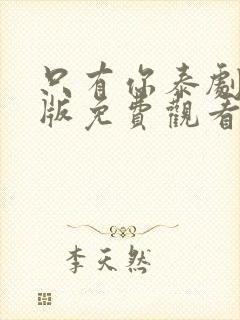 只有你泰劇
版免費觀看
李天然